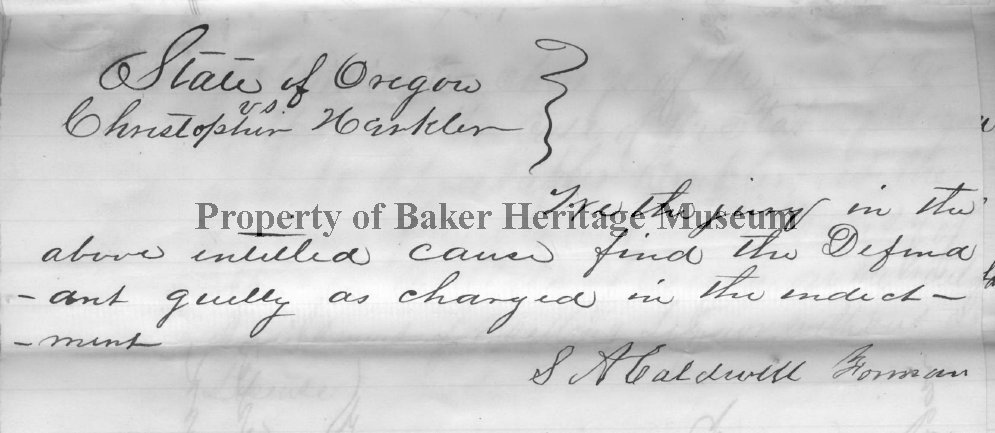 State of Oregon
vs.
Christopher Harkler
We the jury in the
Property of Baker Heritage Museum
above entitled cause find the Defend
-ant guilty as charged in the indect-
-ment
S A Caldwell Forman